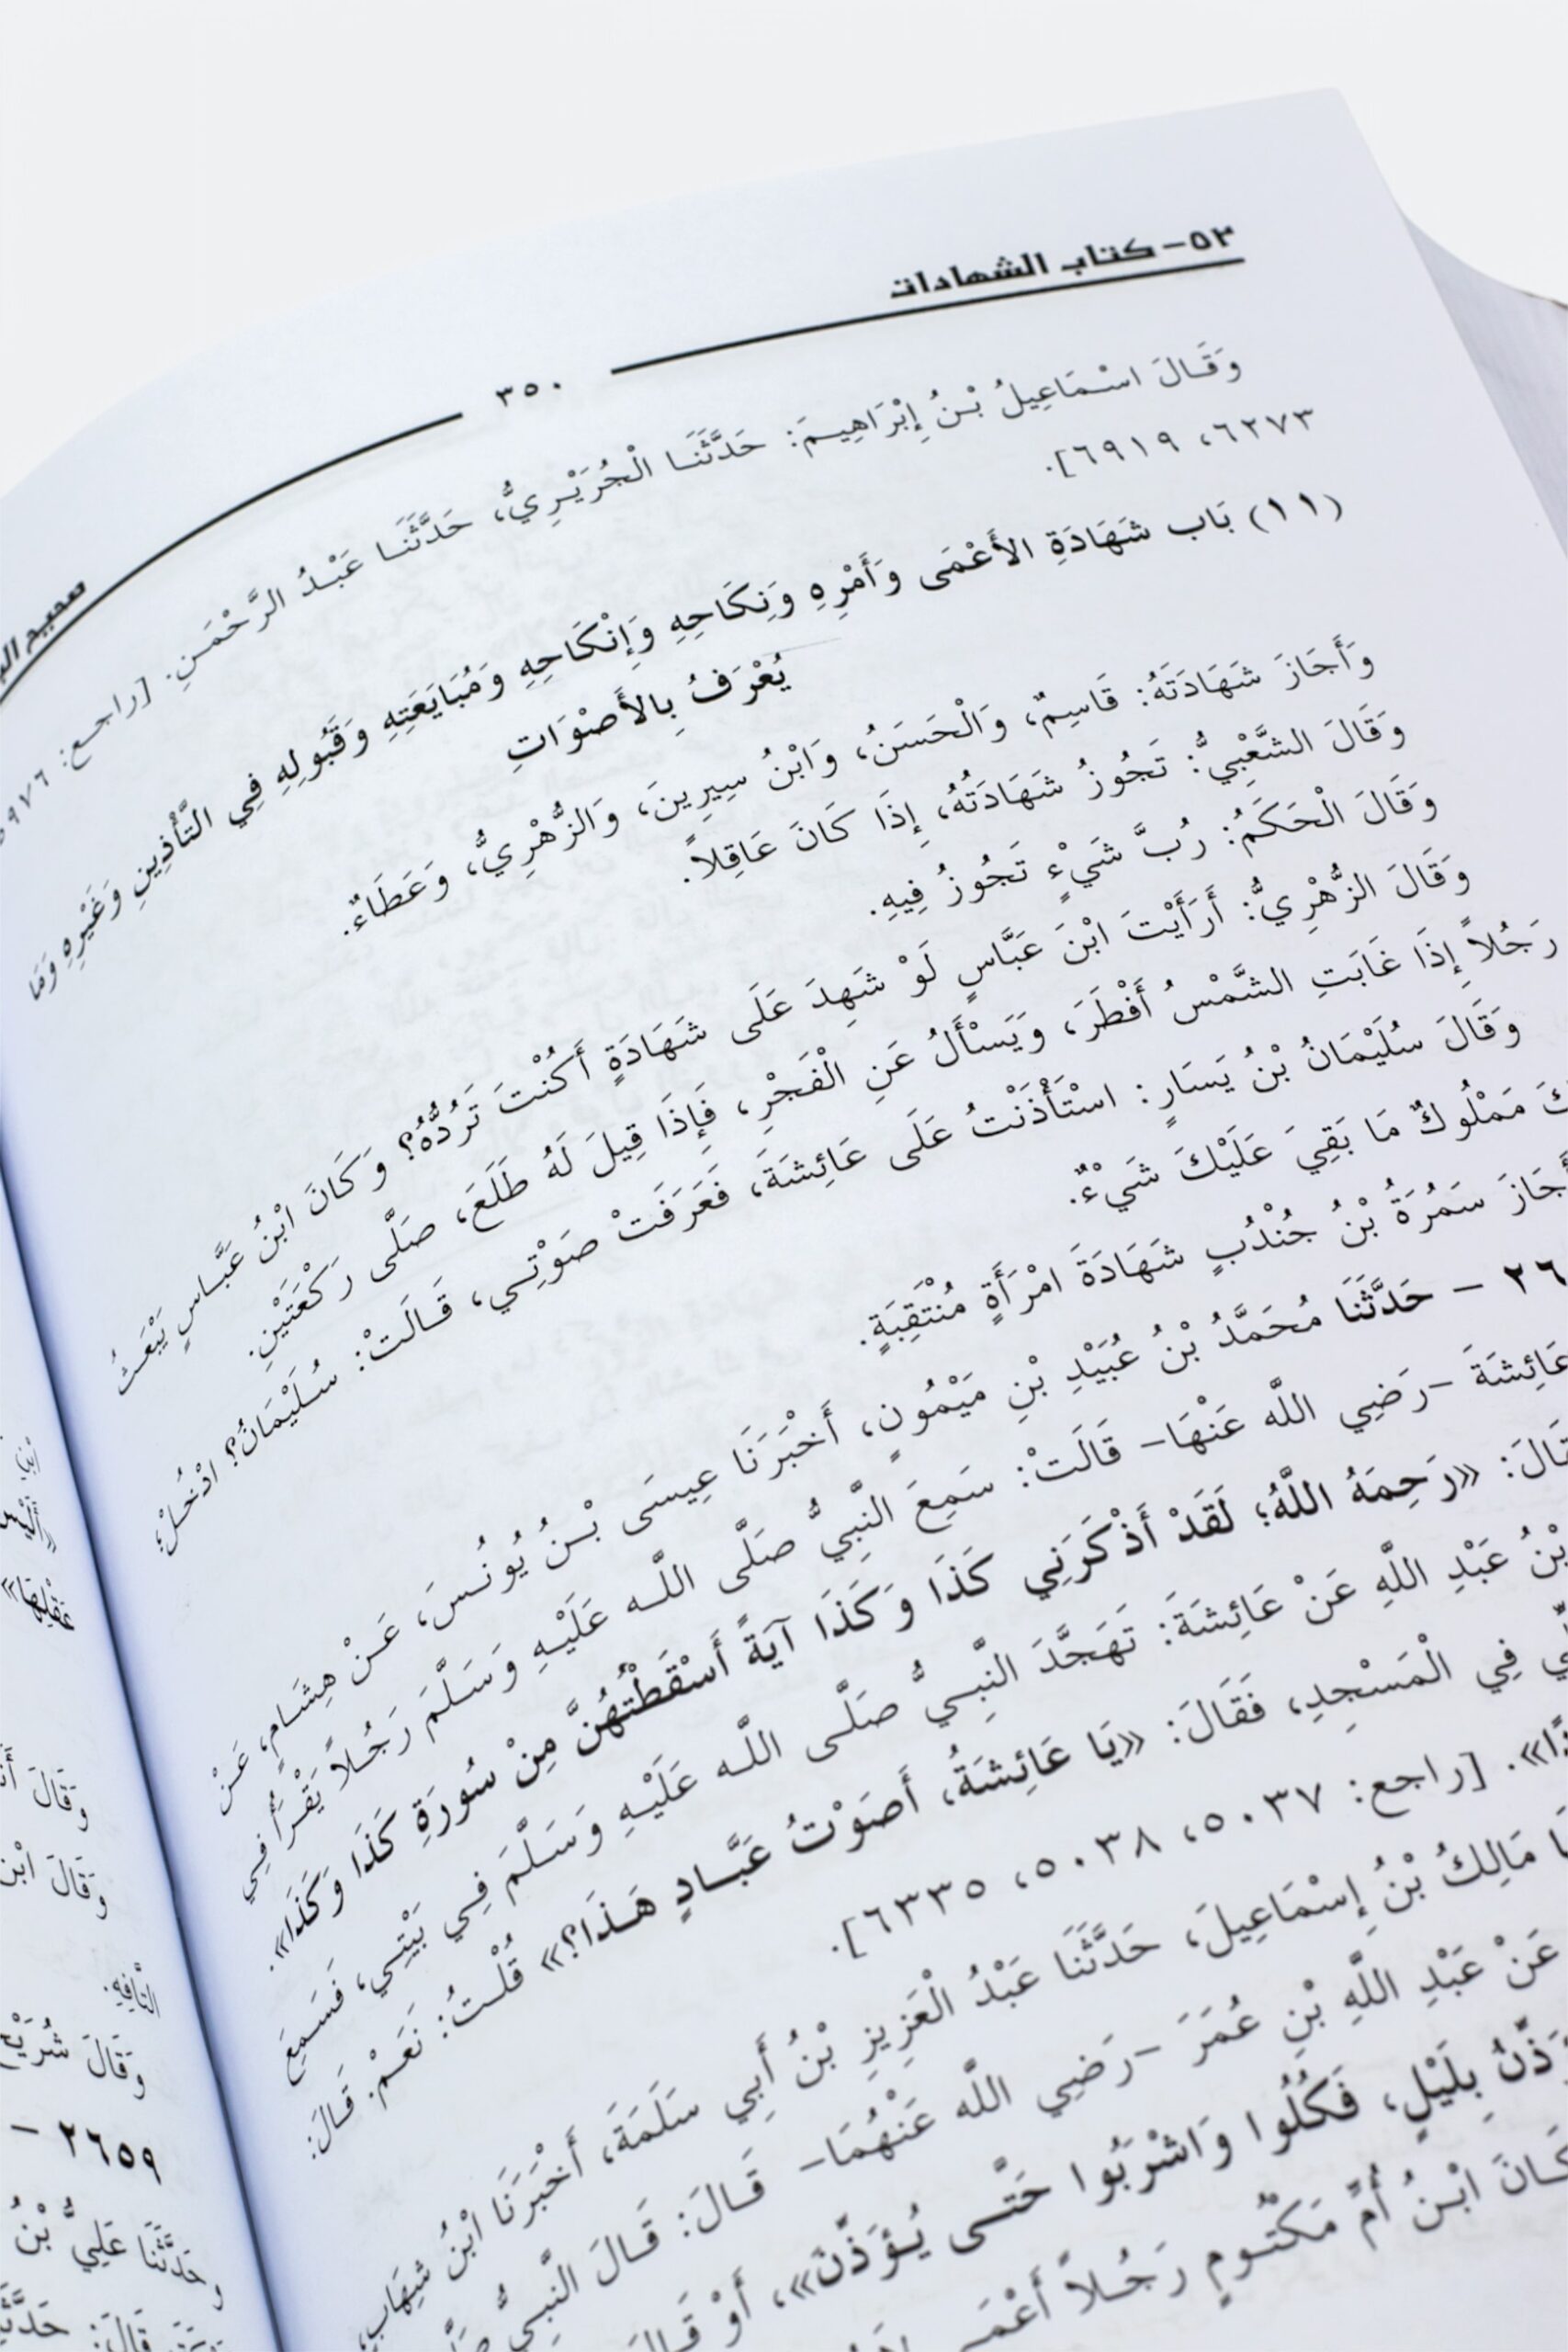 ٥٣- كتاب الشهادات
٣٥٠
وَقَالَ اسْمَاعِيلُ بْنُ إِبْرَاهِيمَ: حَدَّثَنَا الْجُرَيْرِيُّ، حَدَّثَنَا عَبْدُ الرَّحْمَنِ. [راجع:
٦٢٧٣، ٦٩١٩].
(١١) بَاب شَهَادَةِ الأَعْمَى وَأَمْرِهِ وَنِكَاحِهِ وَإِنْكَاحِهِ وَمُبَايَعَتِهِ وَقَبُولِهِ فِي التَّأْذِينِ وَغَيْرِهِ وَمَا
يُعْرَفُ بِالأَصْوَاتِ
وَأَجَازَ شَهَادَتَهُ: قَاسِمٌ، وَالْحَسَنُ، وَابْنُ سِيرِينَ، وَالزُّهْرِيُّ، وَعَطَاءٌ.
وَقَالَ الشَّعْبِيُّ: تَجُوزُ شَهَادَتُهُ، إِذَا كَانَ عَاقِلاً.
وَقَالَ الْحَكَمُ: رُبَّ شَيْءٍ تَجُوزُ فِيهِ.
وَقَالَ الزُّهْرِيُّ: أَرَأَيْتَ ابْنَ عَبَّاسٍ لَوْ شَهِدَ عَلَى شَهَادَةٍ أَكُنْتَ تَرُدُّهُ؟ وَكَانَ ابْنُ عَبَّاسٍ يَبْعَثُ
رَجُلاً إِذَا غَابَتِ الشَّمْسُ أَفْطَرَ، وَيَسْأَلُ عَنِ الْفَجْرِ، فَإِذَا قِيلَ لَهُ طَلَعَ، صَلَّى رَكْعَتَيْنِ.
وَقَالَ سُلَيْمَانُ بْنُ يَسَارٍ: اسْتَأْذَنْتُ عَلَى عَائِشَةَ، فَعَرَفَتْ صَوْتِي، قَالَتْ: سُلَيْمَانُ؟ ادْخُلْ؛
مَمْلُوكٌ مَا بَقِيَ عَلَيْكَ شَيْءٌ.
سَمُرَةُ بْنُ جُنْدُبٍ شَهَادَةَ امْرَأَةٍ مُنْتَقِبَةٍ.
- حَدَّثَنَا مُحَمَّدُ بْنُ عُبَيْدِ بْنِ مَيْمُونٍ، أَخْبَرَنَا عِيسَى بْنُ يُونُسَ، عَنْ هِشَامٍ، عَنْ
عَائِشَةَ -رَضِي اللَّه عَنْهَا- قَالَتْ: سَمِعَ النَّبِيُّ صَلَّى اللَّه عَلَيْهِ وَسَلَّمَ رَجُلاً يَقْرَأُ فِي
«رَحِمَهُ اللَّهُ؛ لَقَدْ أَذْكَرَنِي كَذَا وَكَذَا آيَةً أَسْقَطْتُهُنَّ مِنْ سُورَةِ كَذَا وَكَذَا».
بْنُ عَبْدِ اللَّهِ عَنْ عَائِشَةَ: تَهَجَّدَ النَّبِيُّ صَلَّى اللَّه عَلَيْهِ وَسَلَّمَ فِي بَيْتِي، فَسَمِعَ
فِي الْمَسْجِدِ، فَقَالَ: «يَا عَائِشَةُ، أَصَوْتُ عَبَّادٍ هَذَا؟» قُلْتُ: نَعَمْ. قَالَ:
[راجع: ٥٠٣٧، ٥٠٣٨، ٦٣٣٥].
مَالِكُ بْنُ إِسْمَاعِيلَ، حَدَّثَنَا عَبْدُ الْعَزِيزِ بْنُ أَبِي سَلَمَةَ، أَخْبَرَنَا ابْنُ شِهَابٍ،
عَنْ عَبْدِ اللَّهِ بْنِ عُمَرَ -رَضِي اللَّه عَنْهُمَا- قَالَ: قَالَ النَّبِيُّ
بِلَيْلٍ، فَكُلُوا وَاشْرَبُوا حَتَّى يُؤَذِّنَ»، أَوْ قَالَ
ابْنُ أُمِّ مَكْتُومٍ رَجُلاً أَعْمَى
وَقَالَ
وَقَالَ ابْن
التَّافِهِ.
وَقَالَ شُرَيْح
٢٦٥٩ -
وحَدَّثَنَا عَلِيُّ بْنُ
قَالَ: